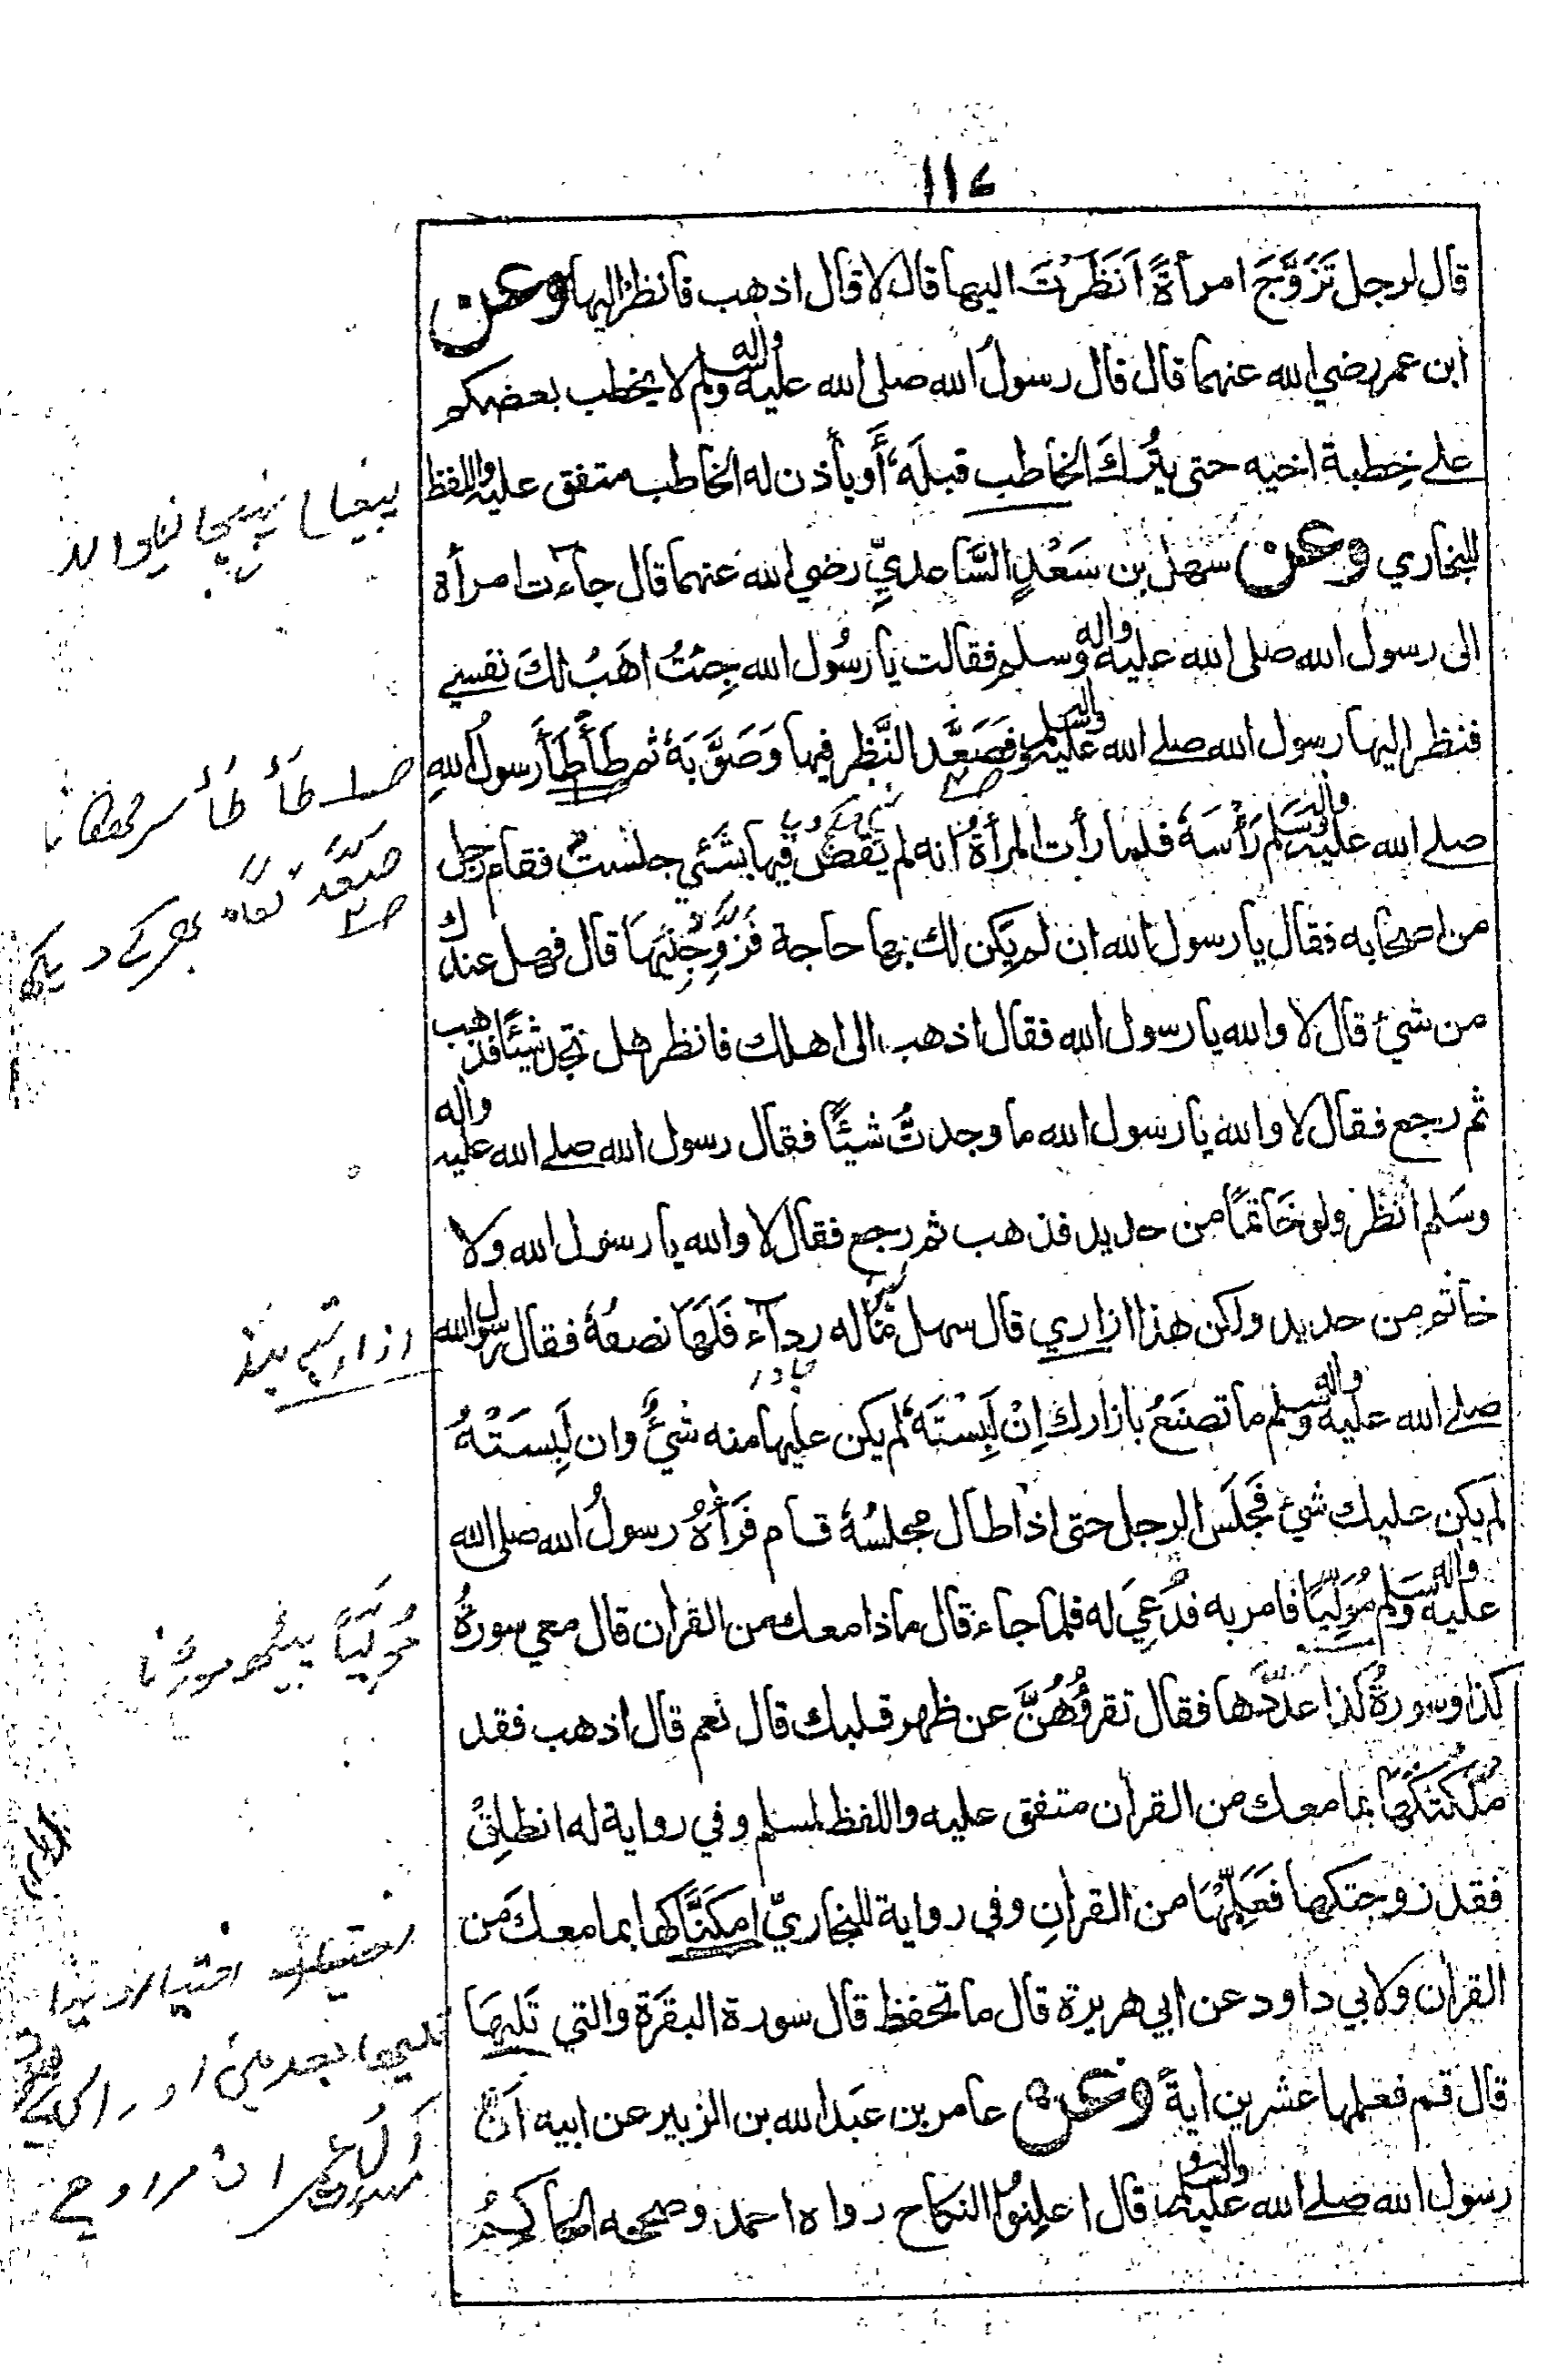 ١١٧
قال لرجل تَزَوَّجَ امرأةً اَنَظَرْتَ اليها قال لا قال اذهب فانظُر اليها وعن
ابن عمر رضي الله عنهما قال قال رسولُ الله صلى الله عليه واٰله وسلم لا يخطب بعضكم
على خِطبة اخيه حتى يتُركَ الخاطب قبلَهٗ أَو يأذن له الخاطب متفق عليه واللفظ
للبخاري وعن سَهْلِ بن سَعْدٍ السَّاعديِّ رضي الله عنهما قال جاءت امرأة
الى رسول الله صلى الله عليه واٰله وسلم فقالت يا رسُول الله جِئتُ اهَبُ لكَ نفسي
فنظر اليها رسول الله صلے الله عليه واٰله وسلم فصَعَّد النَّظر فيها وَصَوَّبَهٗ ثم طَأطَأَ رسولُ اللهِ
صلے الله عليه واٰله وسلم رَأسَهٗ فلما رأت المرأةُ انه لم يَقضِ فيها بشَئي جلست فقام رجل
من اصحابه فقال يا رسول الله ان لم يكن لك بها حاجة فَزَوِّجْنِيهَا قال فهل عندك
من شيئ قال لا والله يا رسول الله فقال اذهب الى اهلك فانظر هل تجد شيئًا فذهب
ثم رجع فقال لا والله يا رسول الله ما وجدتُّ شيئًا فقال رسول الله صلے الله عليه واٰله
وسَلم انظر ولو خَاتمًا من حديد فذهب ثم رجع فقال لا والله يا رسول الله ولا
خاتم مِن حديد ولكن هذا ازاري قال سهل مَّا له رداٰء فَلَهَا نصفُهٗ فقال رسول الله
صلے الله عليه واٰله وسلم ما تصنَعُ بازارك اِنْ لَبِسْتَهٗ لم يكن عليها منه شيئٌ وان لَبِسَتْهُ
لم يكن عليك شئ فجَلَسَ الرجل حتى اذا طال مجلسُهٗ قام فَرَأهُ رسولُ الله صلى الله
عليه واٰله وسَلم مُوَلِّيًا فامر به فدُعِيَ له فلما جاء قال ماذا معك من القرأن قال معي سورةُ
كذا وسورةُ كذا عدَّدَها فقال تقرؤُهُنَّ عن ظهر قلبك قال نعم قال اذهب فقد
مُلِّكْتَكَهَا بما معك من القرأن متفق عليه واللفظ لمسلم وفي رواية له انطلِقْ
فقد زوجتكها فعَلِّمْهَا من القرانِ وفى رواية للبخاريّ امكَنَّاكها بما معكَ من
القران ولابي داود عن ابي هريرة قال ما تحفظ قال سورة البقَرَة والتي تَلِيهَا
قال قم فعلمها عشرين اٰيةً وعن عامر بن عبد الله بن الزبير عن ابيه اَنَّ
رسول الله صلے الله عليه واٰله وسلم قال اعلِنوُا النكاح رواه احمد وصححه الحاكمُ
طأطأ سر جھکانا
صَعَّدَ نگاه بھر کے دیکھی
چادر
ازار تہ بند
مُوَلِّيًا پیٹھ موڑنا